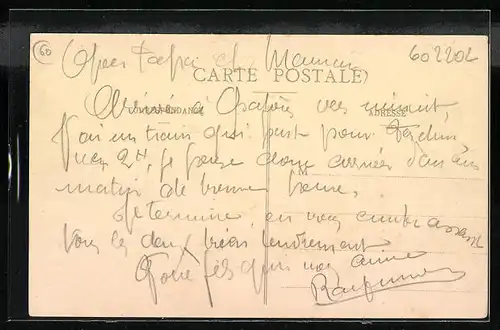 60
602202
Papa et Maman
CARTE POSTALE
CORRESPONDANCE
ADRESSE
Arrivé à vers minuit,
un train qui part pour
vers 2H, je pense donc arriver dans
matin de bonne heure.
Je termine en vous embrassant
tous les deux bien tendrement
Votre fils qui vous aime